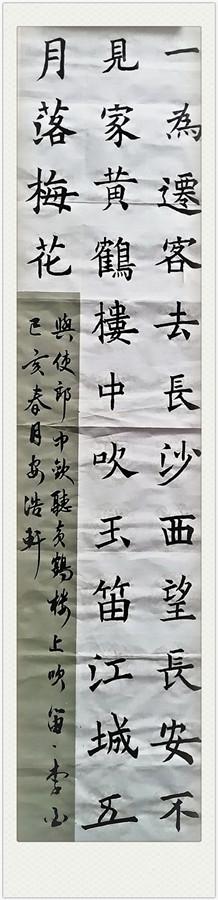 一為遷客去長沙西望長安不
見家黃鶴樓中吹玉笛江城五
月落梅花
與使郎中欽聽黃鶴樓上吹笛、李白
己亥春月安浩軒